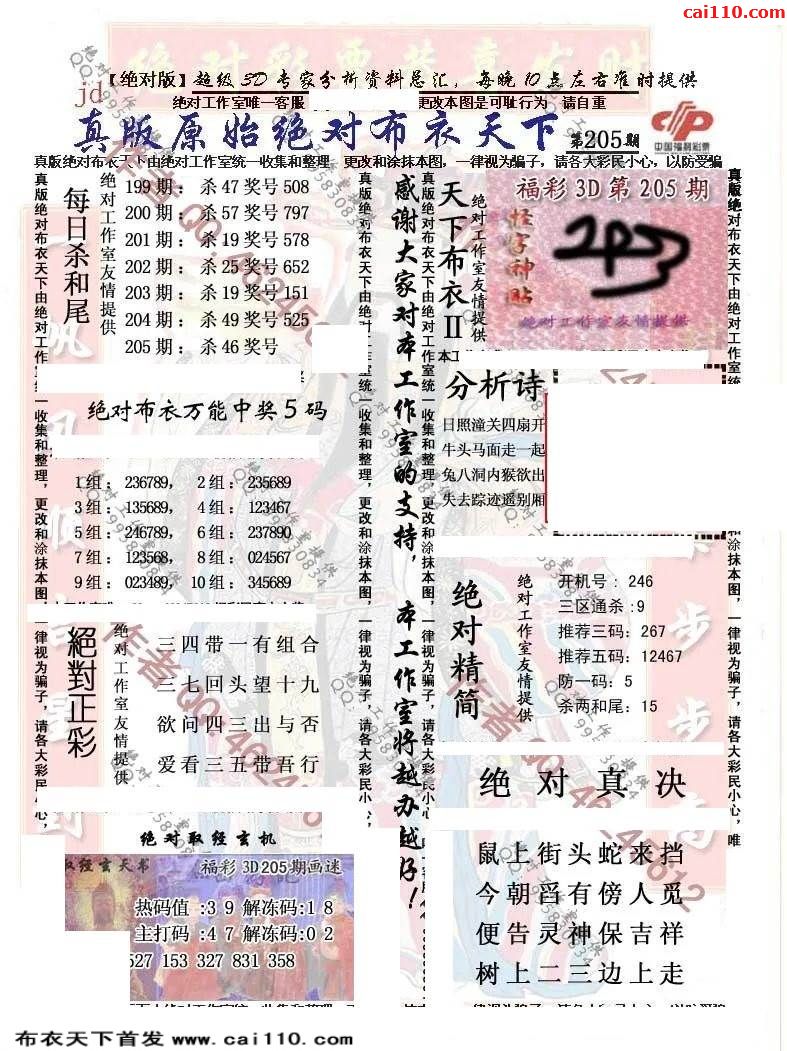 cai110.com
【绝对版】超级3D专家分析资料总汇，每晚10点左右准时提供
jd
绝对工作室唯一客服 更改本图是可耻行为 请自重
真版原始绝对布衣天下 第205期
中国福利彩票
真版绝对布衣天下由绝对工作室统一收集和整理，更改和涂抹本图，一律视为骗子，请各大彩民小心，以防受骗
每日杀和尾
绝对工作室友情提供
199期：杀47奖号508
200期：杀57奖号797
201期：杀19奖号578
202期：杀25奖号652
203期：杀19奖号151
204期：杀49奖号525
205期：杀46奖号
绝对布衣万能中奖5码
1组：236789， 2组：235689
3组：135689， 4组：123467
5组：246789， 6组：237890
7组：123568， 8组：024567
9组：023489， 10组：345689
絕對正彩
绝对工作室友情提供
三四带一有组合
三七回头望十九
欲问四三出与否
爱看三五带吾行
绝对取经玄机
取经玄天书
福彩3D205期画迷
热码值:39解冻码:18
主打码:47解冻码:02
527 153 327 831 358
感谢大家对本工作室的支持，本工作室将越办越好！
天下布衣II
绝对工作室友情提供
福彩3D第205期
怪字神贴
绝对工作室友情提供
分析诗
日照潼关四扇开
牛头马面走一起
兔八洞内猴欲出
失去踪迹遥别厢
绝对精简
绝对工作室友情提供
开机号：246
三区通杀：9
推荐三码：267
推荐五码：12467
防一码：5
杀两和尾：15
绝对真决
鼠上街头蛇来挡
今朝滔有傍人觅
便告灵神保吉祥
树上二三边上走
布衣天下首发 www.cai110.com